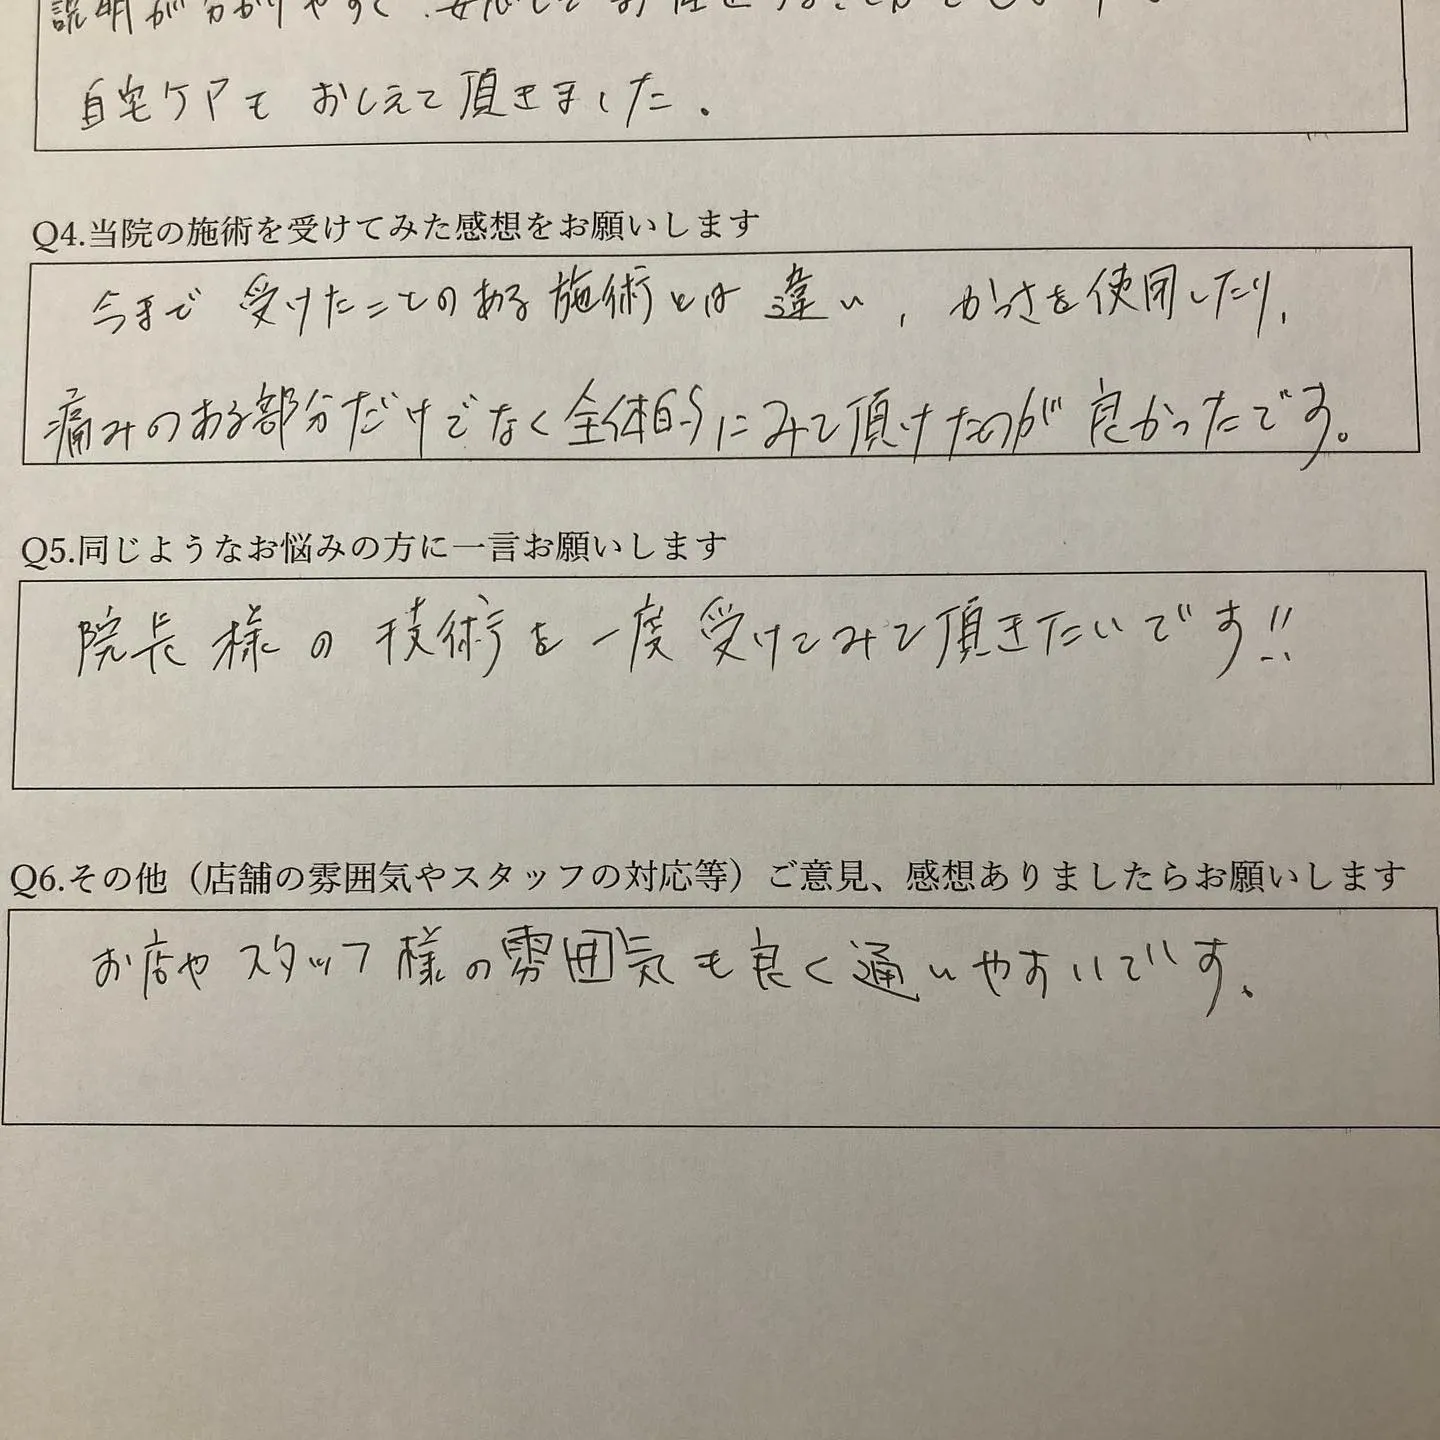 説明が分かりやすく、安心してお任せすることが
自宅ケアもおしえて頂きました。
Q4.当院の施術を受けてみた感想をお願いします
今まで受けたことのある施術とは違い、かっさを使用したり、
痛みのある部分だけでなく全体的にみて頂けたのが良かったです。
Q5.同じようなお悩みの方に一言お願いします
院長様の技術を一度受けてみて頂きたいです!!
Q6.その他（店舗の雰囲気やスタッフの対応等）ご意見、感想ありましたらお願いします
お店やスタッフ様の雰囲気も良く通いやすいです。